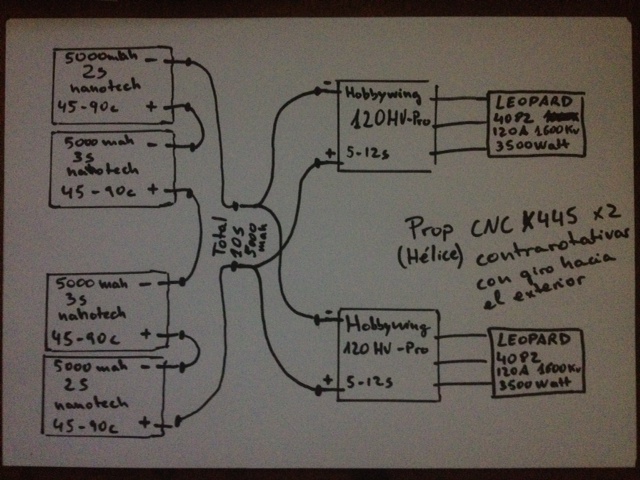 5000mah -
2s
nanotech
45-90c +
5000 mah -
3s
nanotech
45-90c +
5000 mah -
3s
nanotech
45-90c +
5000 mah -
2s
nanotech
45-90c +
Total
10s
5000
mah
- Hobbywing
120HV-Pro
+ 5-12s
LEOPARD
40P2
120A 1600Kv
3500Watt
Prop CNC X445 x2
(Hélice) contrarotativas
con giro hacia
el exterior
- Hobbywing
120HV-Pro
+ 5-12s
LEOPARD
40P2
120A 1600Kv
3500Watt